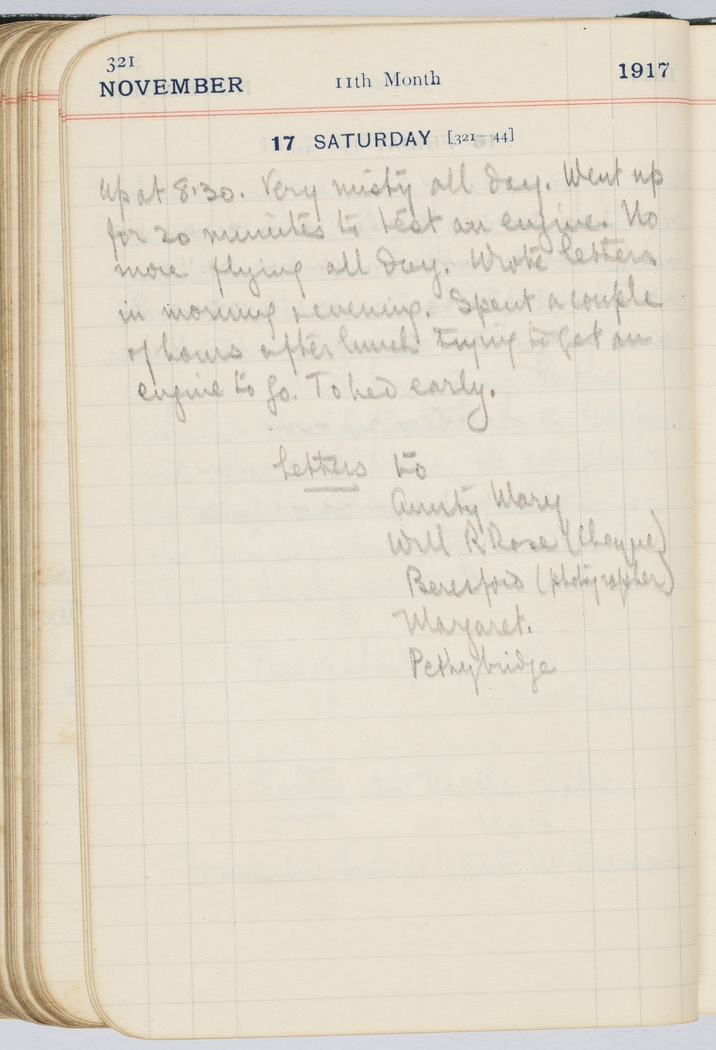 321
NOVEMBER 11th Month 1917
17 SATURDAY [321—44]
Up at 8.30. Very misty all day. Went up
for 20 minutes to test an engine. No
more flying all day. Wrote letters
in morning & evening. Spent a couple
of hours after lunch trying to get an
engine to go. To bed early.
Letters to
Aunty Mary
Will R Rose (Cheque)
Beresford (photographer)
Margaret.
Pethybridge